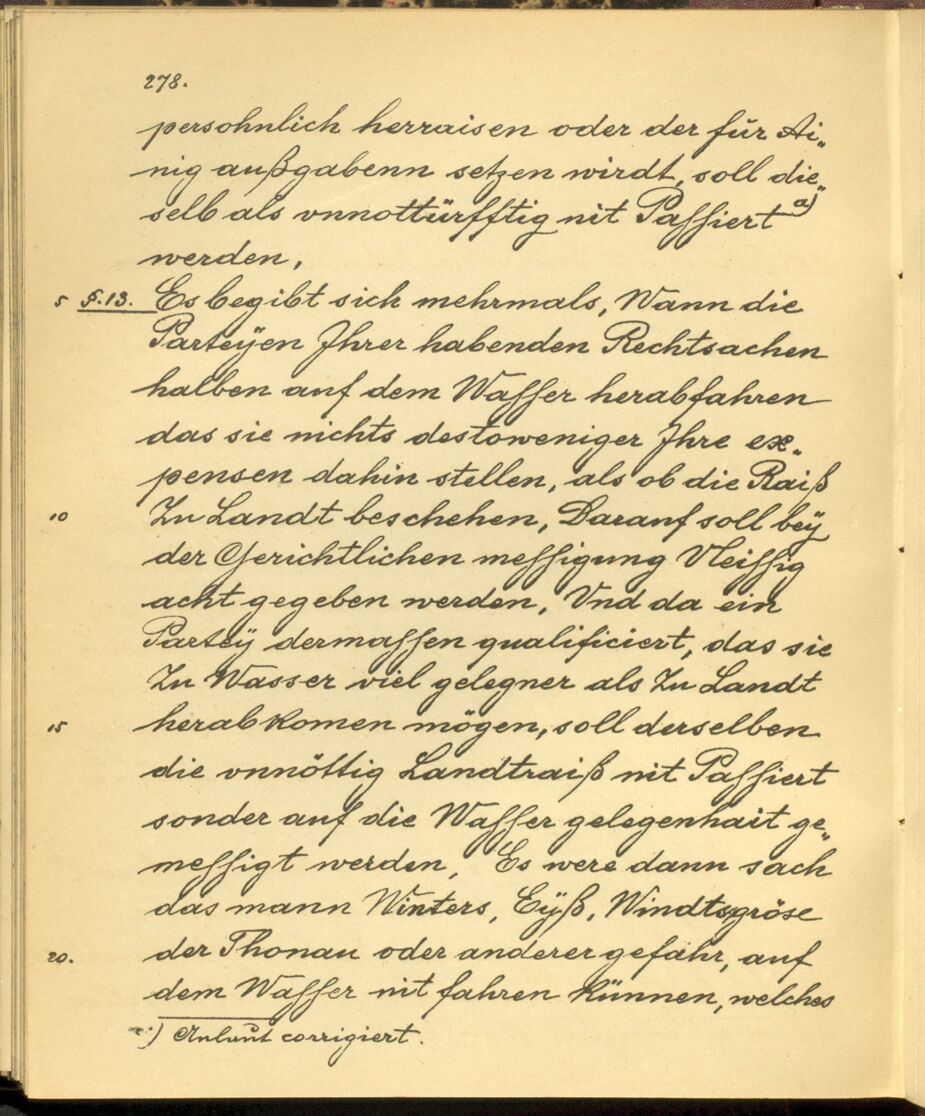 278.
persohnlich herraisen oder der für Ai„
nig außgabenn setzen wirdt, soll die„
selb als vnnottürfftig nit Passiert a)
werden,
5 §.13. Es begibt sich mehrmals, Wann die
Parteÿen Jhrer habenden Rechtsachen
halben auf dem Wasser herabfahren
das sie nichts destoweniger Jhre ex„
pensen dahin stellen, als ob die Raiß
10 Zu Landt beschehen, Darauf soll beÿ
der Gerichtlichen messigung Vleissig
acht gegeben werden, Vnd da ein
Parteÿ dermassen qualificiert, das sie
Zu Wasser viel gelegner als Zu Landt
15 herabkomen mögen, soll derselben
die vnnöttig Landtraiß nit Passiert
sonder auf die Wasser gelegenhait ge„
messigt werden, Es were dann sach
das mann Winters, Eÿß, Windts, gröse
20. der Thonau oder anderer gefahr, auf
dem Wasser nit fahren künnen, welches
a) Anlaut corrigiert.